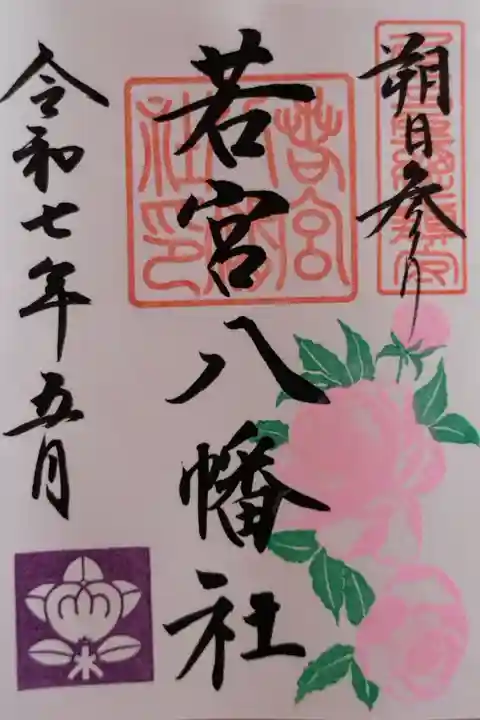 朔日参り
若宮八幡社
令和七年五月